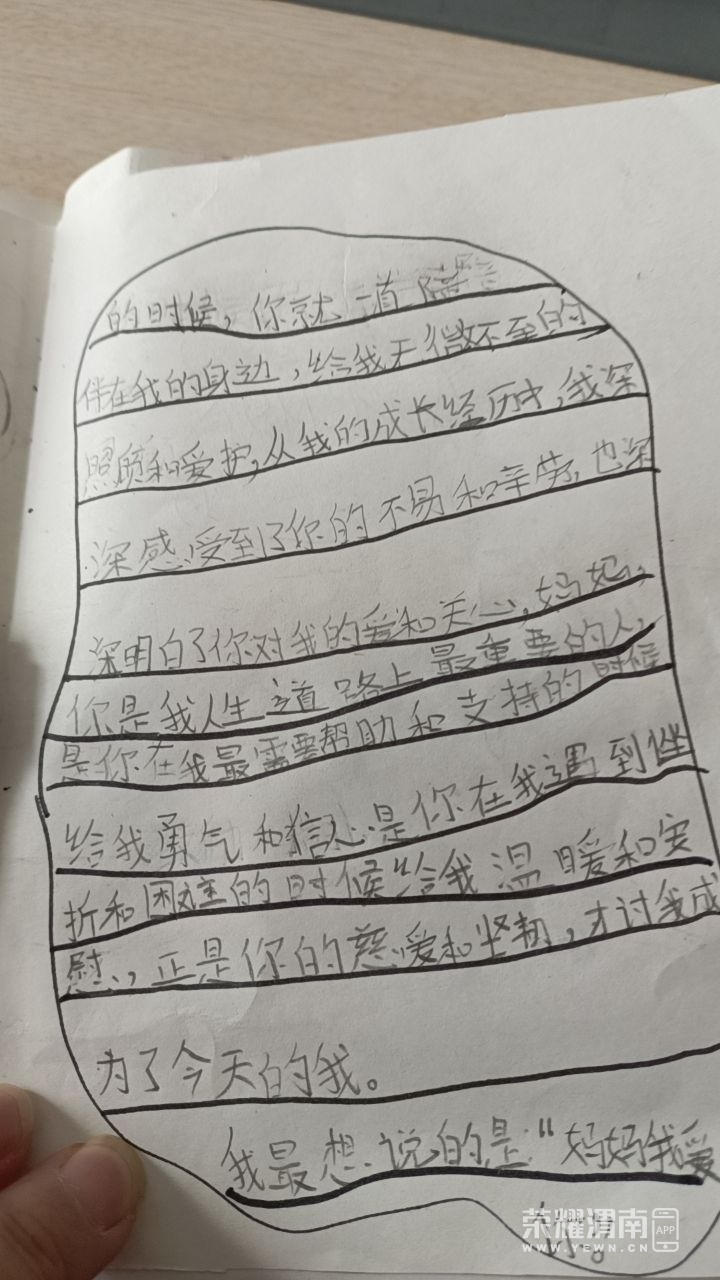 的时候，你就一道陪
伴在我的身边，给我无微不至的
照顾和爱护，从我的成长经历中，我深
深感受到了你的不易和辛劳，也深
深明白了你对我的爱和关心，妈妈，
你是我人生道路上最重要的人，
是你在我最需要帮助和支持的时候
给我勇气和信心是你在我遇到挫
折和困难的时候给我温暖和安
慰，正是你的慈爱和坚韧，才讨我成
为了今天的我。
我最想说的是：“妈妈我爱
荣耀渭南 APP
WWW.YEWN.CN